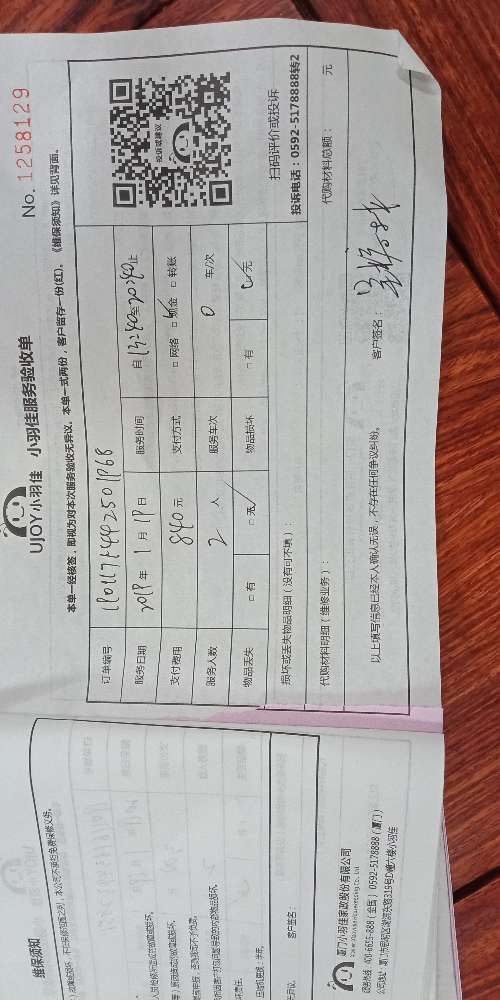 UJOY小羽佳 小羽佳服务验收单
No. 1258129
本单一经核签，即视为对本次服务验收无异议，本单一式两份，客户留存一份(红)。《维保须知》详见背面。
订单编号
服务日期 2019 年 1 月 19 日 服务时间 自 13:40 至 20:40 止
支付费用 840 元 支付方式 □ 网络 □ 现金 □ 转账
服务人数 2 人 服务车次 0 车/次
物品丢失 □ 有 □ 无 物品损坏 □ 有 □ 无
投诉或建议
扫码评价或投诉
投诉电话：0592-5178888转2
损坏或丢失物品明细（没有可不填）：
代购材料明细（维修业务）： 代购材料总额： 元
以上填写信息已经本人确认无误，不存在任何争议纠纷。 客户签名：
维保须知
客户签名：
厦门小羽佳家政股份有限公司
服务热线：400-6655-888（全国） 0592-5178888（厦门）